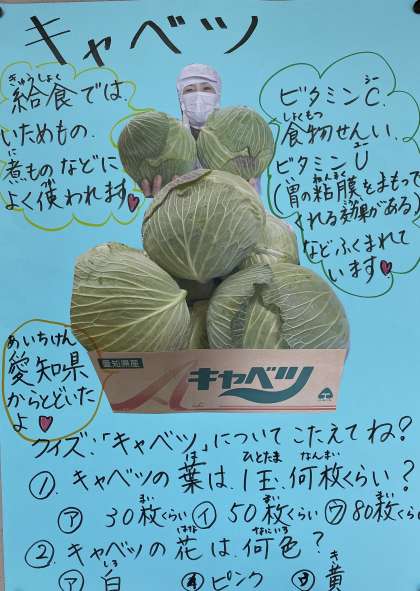 キャベツ
給食では
きゅうしょく
いためもの、
煮ものなどに
に
よく使われます♥
つか
ビタミンC、
シー
食物せんい、
しょくもつ
ビタミンU
ユー
(胃の粘膜をまもって
い ねんまく
くれる効果がある)
こうか
などふくまれて
います♥
愛知県産
キャベツ
あいちけん
愛知県
からとどいた
よ♥
クイズ、「キャベツ」についてこたえてね?
①、キャベツの葉は、1玉、何枚くらい?
は ひとたま なんまい
㋐ 30枚くらい ㋑ 50枚くらい ㋒ 80枚くら
まい まい まい
②、キャベツの花は、何色?
はな なにいろ
㋐ 白 ピンク 黄
しろ き